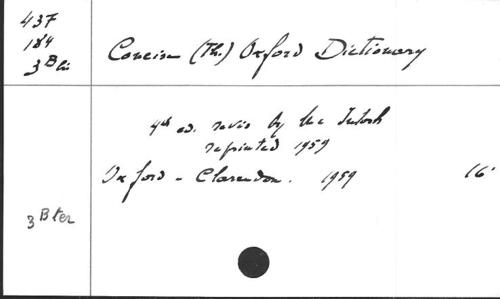 437
184
3 B bis
Concise (The) Oxford Dictionary
4th ed. revis by Mc Intosh
reprinted 1959
Oxford - Clarendon. 1959 16'
3 B ter